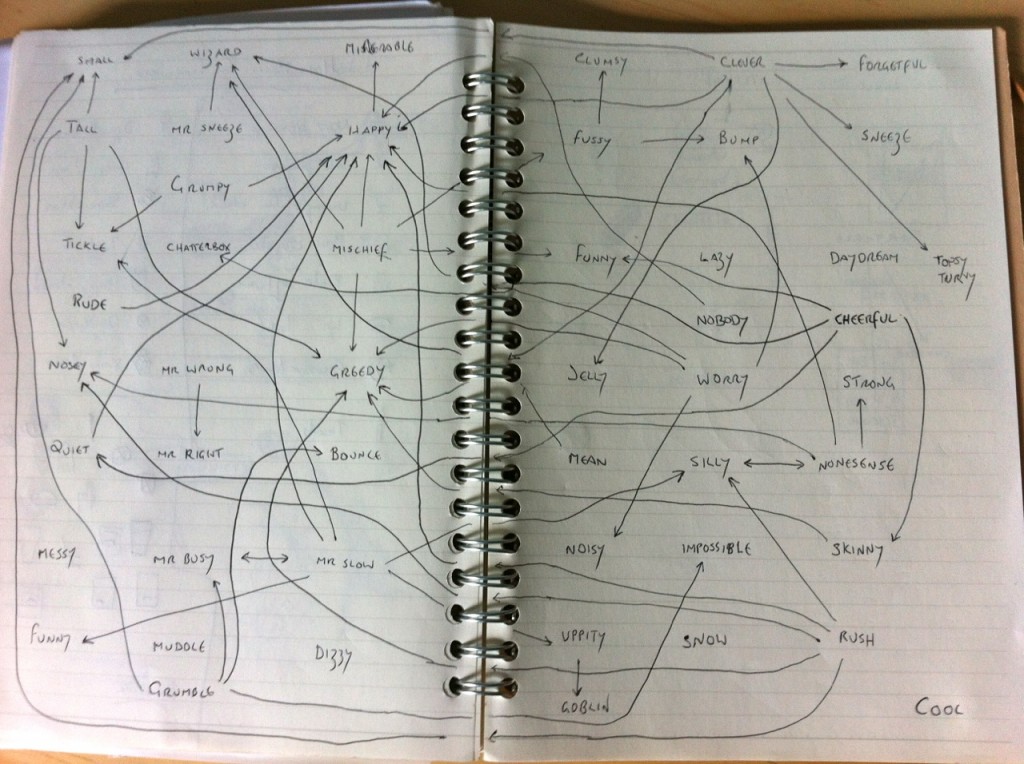 SMALL
WIZARD
MISERABLE
TALL
MR SNEEZE
HAPPY
GRUMPY
TICKLE
CHATTERBOX
MISCHIEF
RUDE
NOSEY
MR WRONG
GREEDY
QUIET
MR RIGHT
BOUNCE
MESSY
MR BUSY
MR SLOW
FUNNY
MUDDLE
DIZZY
GRUMBLE
CLUMSY
CLEVER
FORGETFUL
FUSSY
BUMP
SNEEZE
FUNNY
LAZY
DAYDREAM
TOPSY
TURVY
NOBODY
CHEERFUL
JELLY
WORRY
STRONG
MEAN
SILLY
NONESENSE
NOISY
IMPOSSIBLE
SKINNY
UPPITY
SNOW
RUSH
GOBLIN
COOL